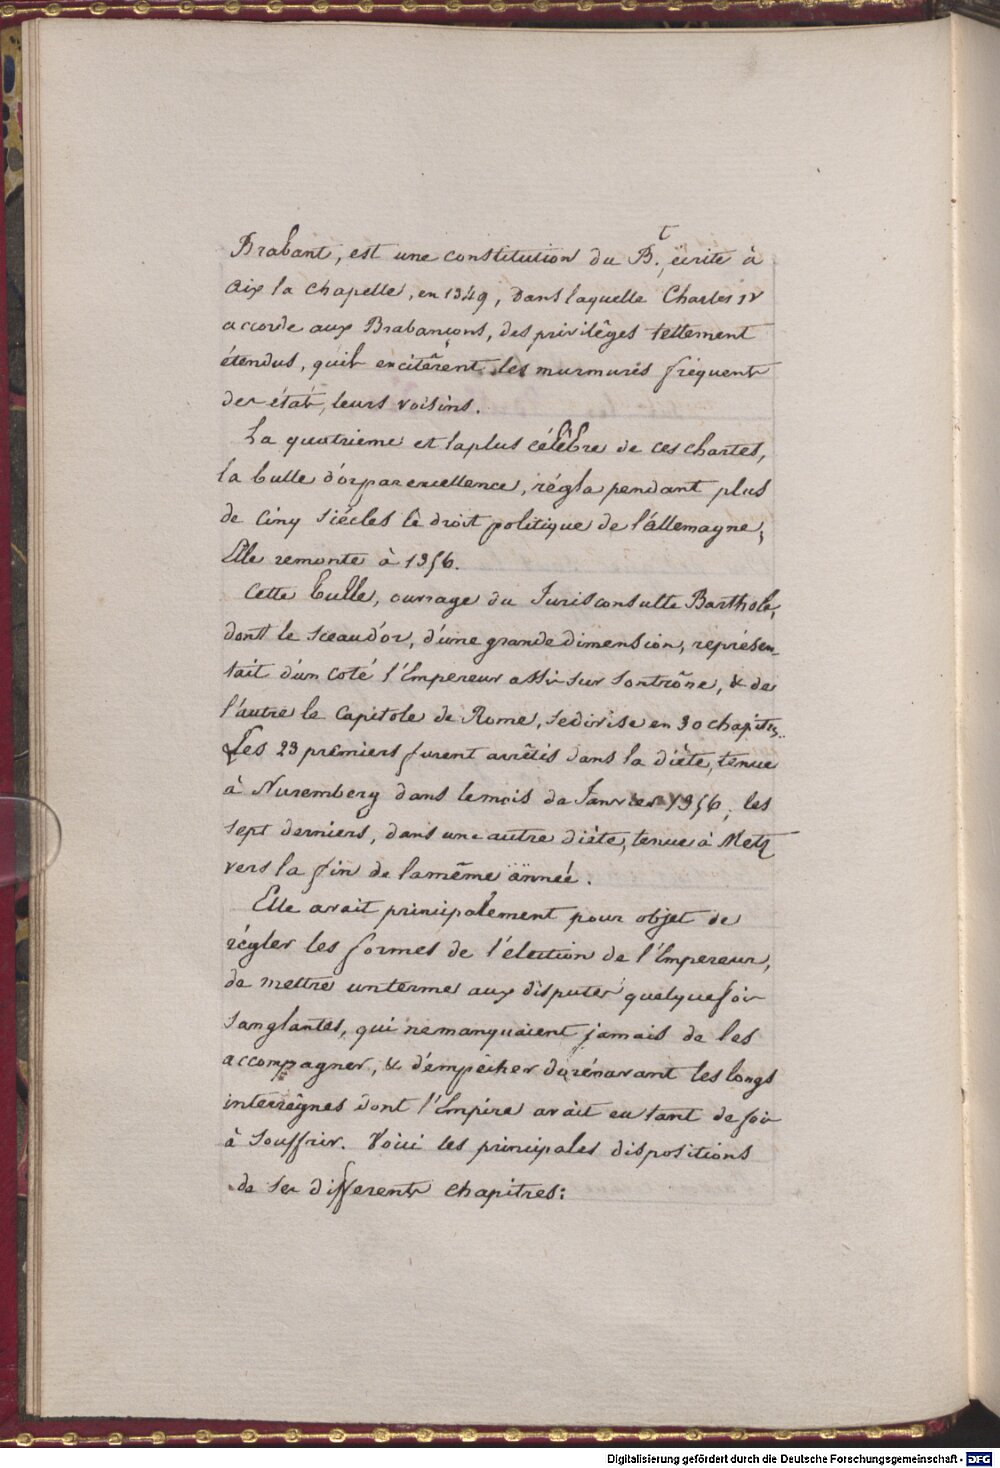 Brabant, est une constitution du B.t, écrite à
Aix la Chapelle, en 1349, dans laquelle Charles IV
accorde aux Brabançons, des privilêges tellement
étendus, quils excitêrent les murmures fréquents
des états, leurs voisins.
La quatrieme et la plus célêbre de ces chartes,
la bulle d'or par excellence, régla pendant plus
de cinq siécles le droit politique de l'allemagne;
Elle remonte à 1356.
Cette bulle, ouvrage du Jurisconsulte Barthole,
dont le sceau d'or, d'une grande dimension, représen-
tait d'un coté l'Empereur assis sur son trône, & de
l'autre le Capitole de Rome, se divise en 30 chapitres.
Les 23 premiers furent arrêtés dans la diête, tenue
à Nuremberg dans le mois de Janvier 1356; les
sept derniers, dans une autre diète, tenue à Metz
vers la fin de la même année.
Elle avait principalement pour objet de
régler les formes de l'élection de l'Empereur,
de mettre un terme aux disputes quelquefois
sanglantes, qui ne manquaient jamais de les
accompagner, & d'empêcher dorénavant les longs
interrêgnes dont l'Empire avait eu tant de fois
à souffrir. Voici les principales dispositions
de ses differents chapitres:
Digitalisierung gefördert durch die Deutsche Forschungsgemeinschaft - DFG